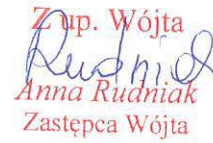 Z up. Wójta
Anna Rudniak
Zastępca Wójta